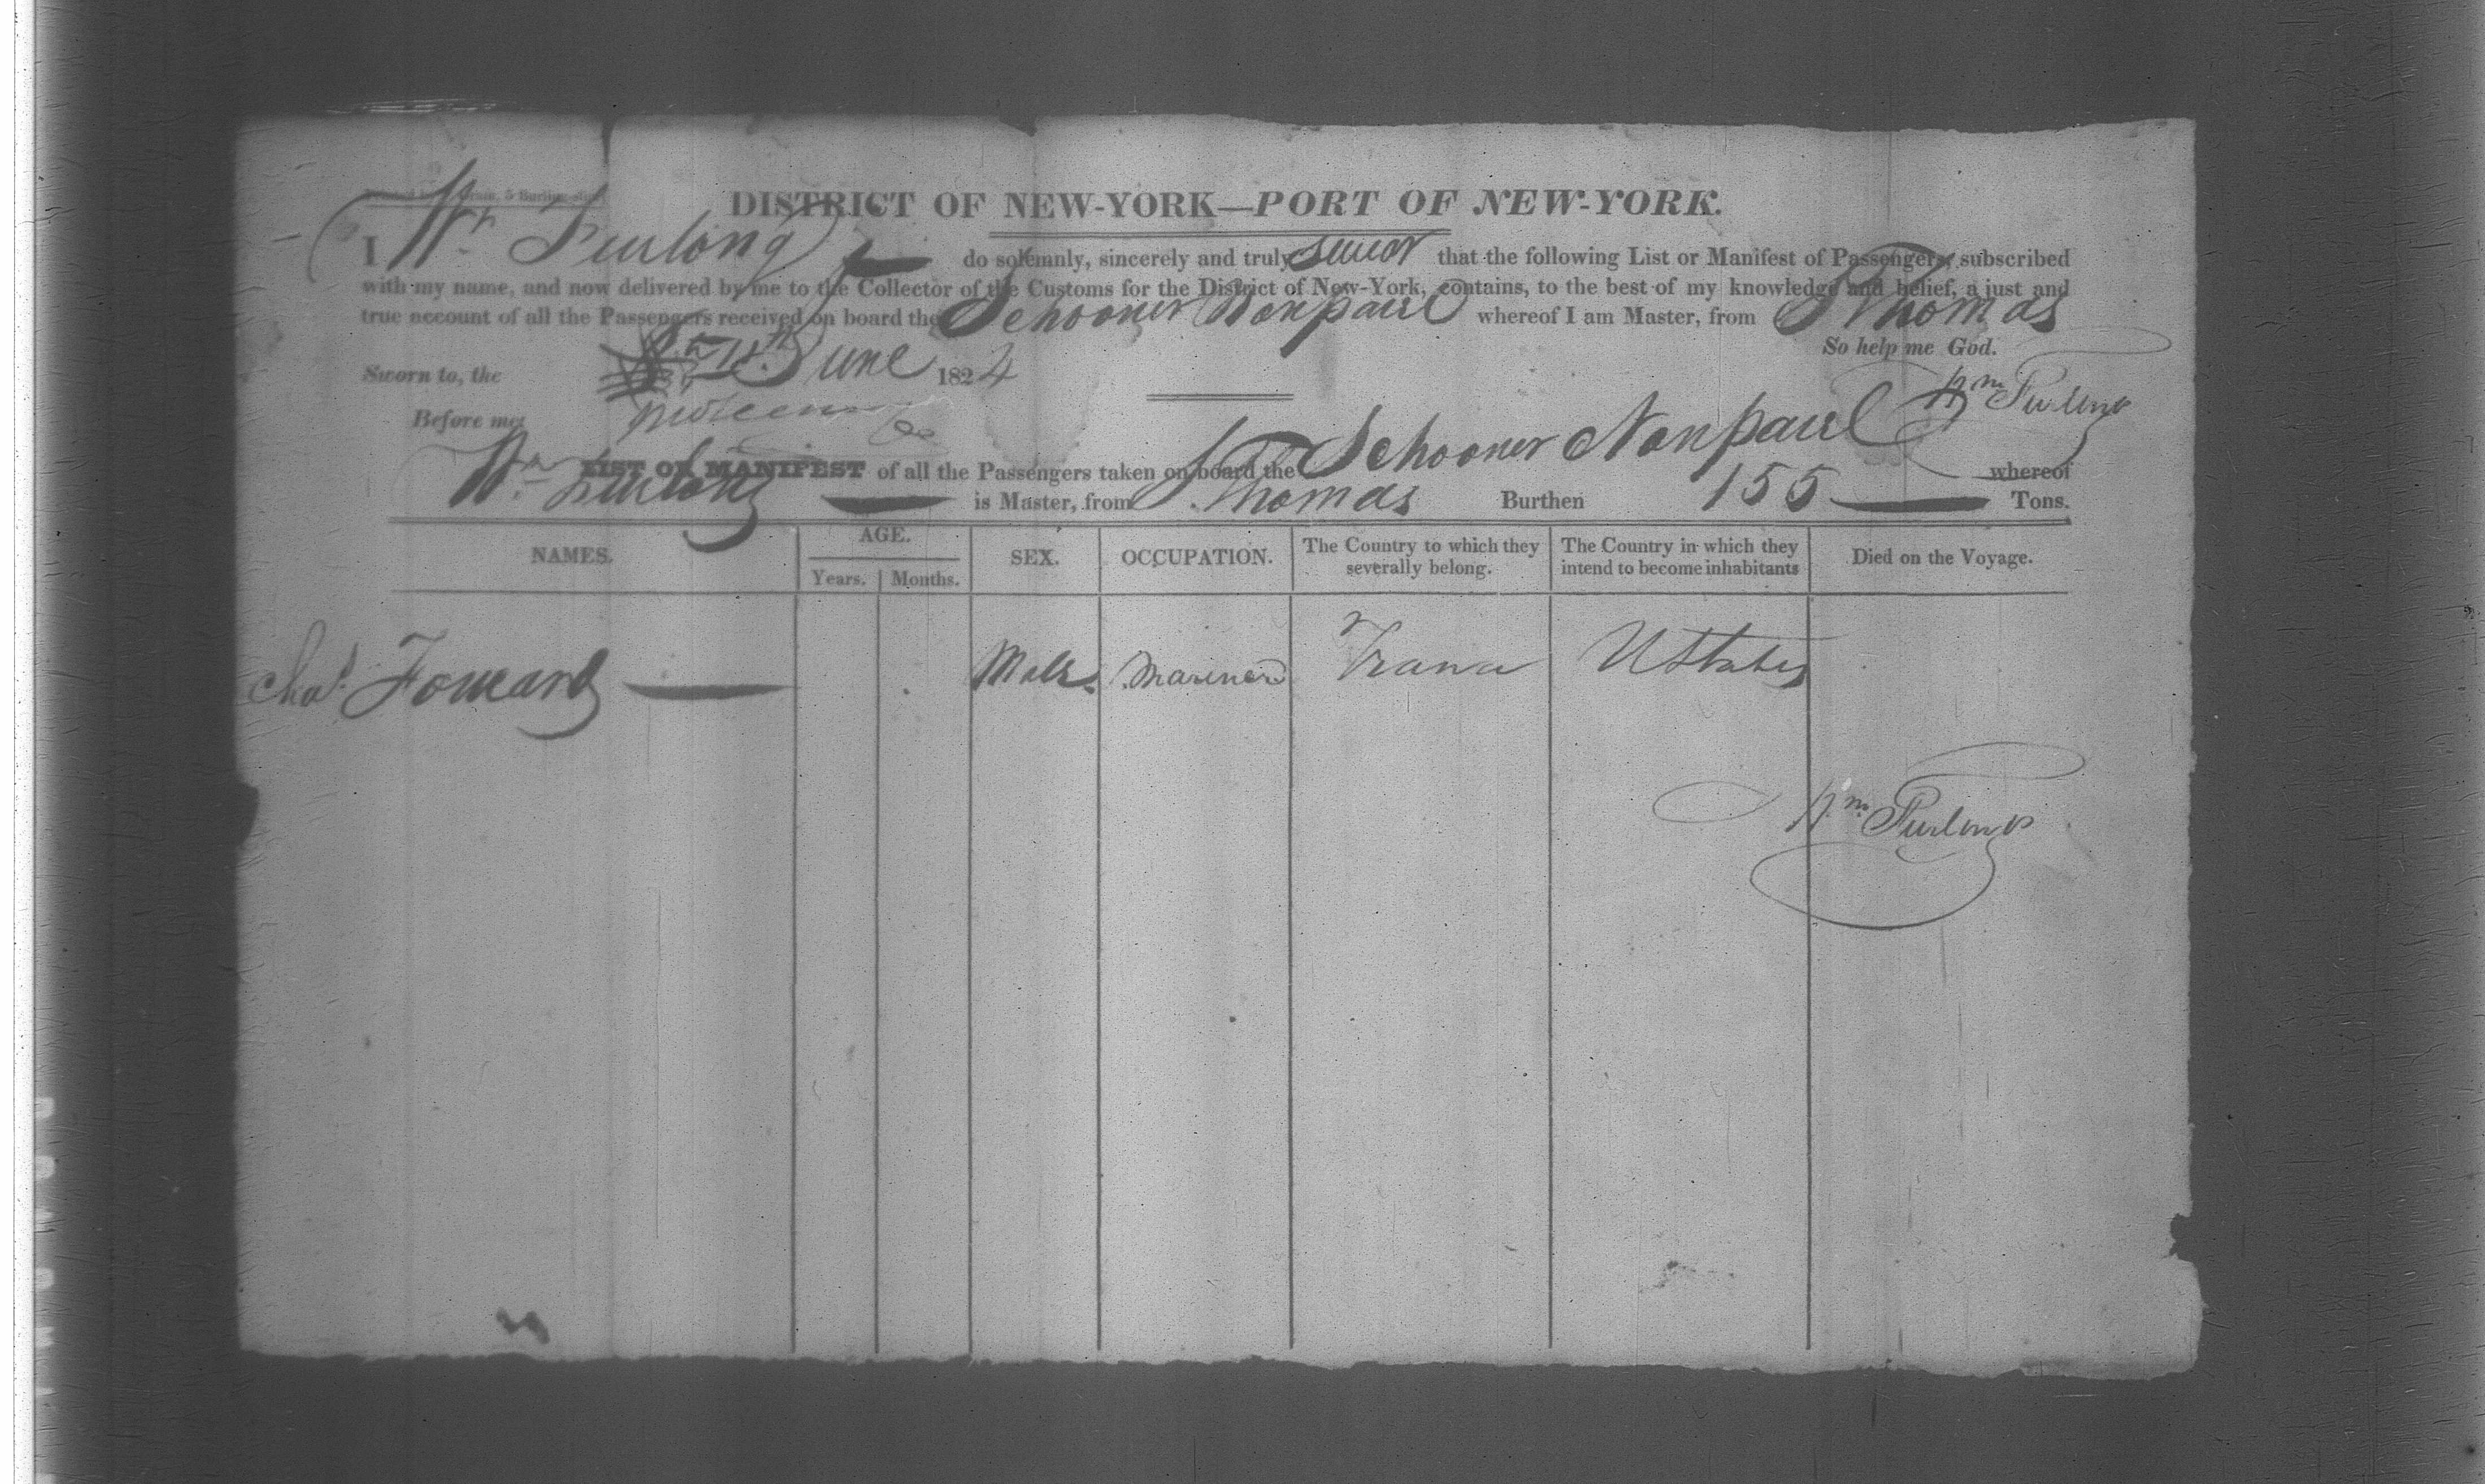 DISTRICT OF NEW-YORK—PORT OF NEW-YORK.
I Wm Furlong do solemnly, sincerely and truly swear that the following List or Manifest of Passengers, subscribed
with my name, and now delivered by me to the Collector of the Customs for the District of New-York, contains, to the best of my knowledge and belief, a just and
true account of all the Passengers received on board the Schooner Nonpareil whereof I am Master, from St Thomas
So help me God.
Sworn to, the June 1824
Wm Furlong
Before me,
LIST OR MANIFEST of all the Passengers taken on board the Schooner Nonpareil whereof
Wm Furlong is Master, from St Thomas Burthen 155 Tons.
NAMES. AGE. SEX. OCCUPATION. The Country to which they severally belong. The Country in which they intend to become inhabitants Died on the Voyage.
Years. Months.
Chas. Male. Mariner France UStates
Wm Furlong